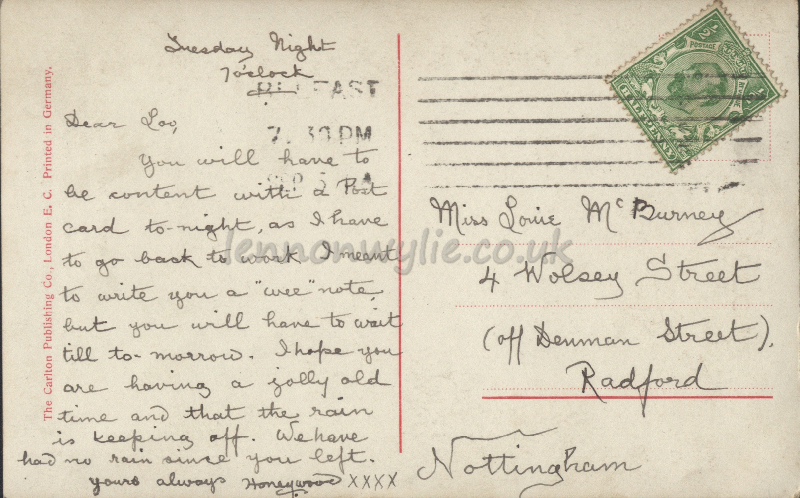 The Carlton Publishing Co., London E. C. Printed in Germany.
Tuesday Night
7 o'clock
BELFAST
7. 30 PM
SEP
Dear Loo,
You will have to
be content with a Post
card to-night, as I have
to go back to work I meant
to write you a "wee" note,
but you will have to wait
till to-morrow. I hope you
are having a jolly old
time and that the rain
is keeping off. We have
had no rain since you left.
yours always Honeywood XXXX
½d POSTAGE
HALFPENNY
Miss Louie McBurney
4 Wolsey Street
(off Denman Street),
Radford
Nottingham
lennonwylie.co.uk